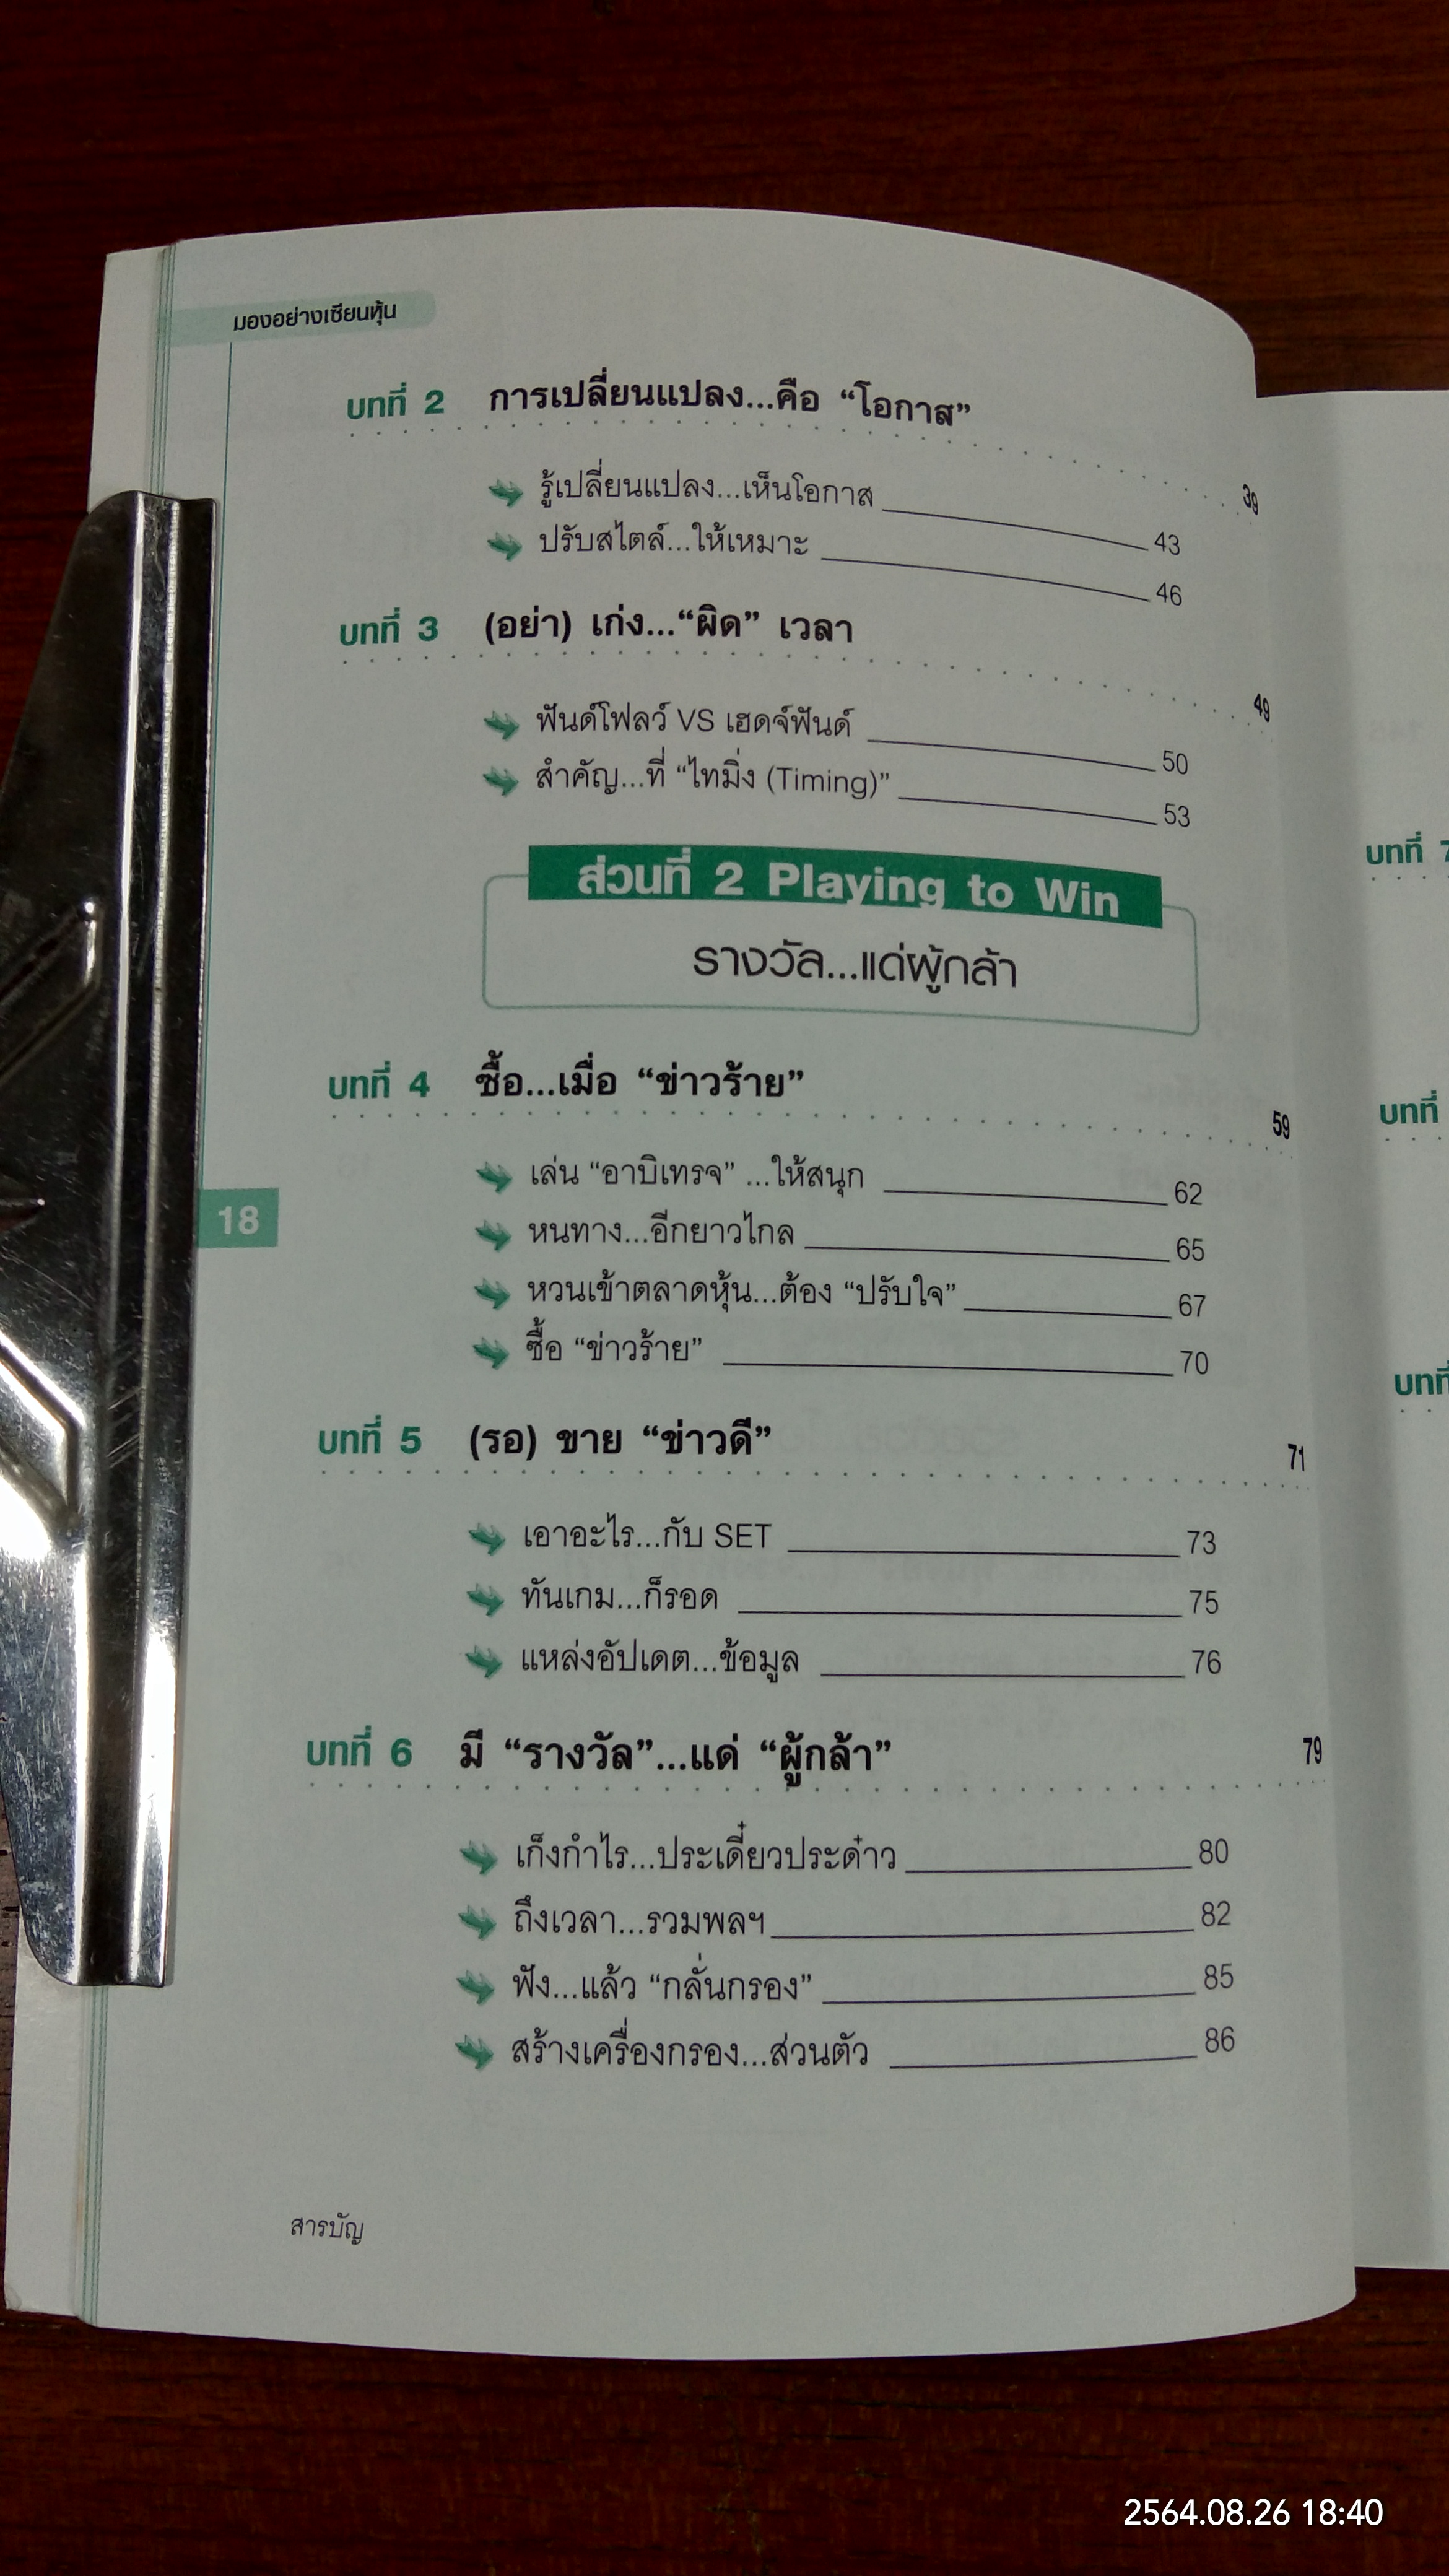 มองอย่างเซียนหุ้น
บทที่ 2 การเปลี่ยนแปลง...คือ “โอกาส” 39
รู้เปลี่ยนแปลง...เห็นโอกาส 43
ปรับสไตล์...ให้เหมาะ 46
บทที่ 3 (อย่า) เก่ง...“ผิด” เวลา 49
ฟันด์โฟลว์ VS เฮดจ์ฟันด์ 50
สำคัญ...ที่ “ไทมิ่ง (Timing)” 53
ส่วนที่ 2 Playing to Win
รางวัล...แด่ผู้กล้า
บทที่ 4 ซื้อ...เมื่อ “ข่าวร้าย” 59
เล่น “อาบิเทรจ” ...ให้สนุก 62
หนทาง...อีกยาวไกล 65
หวนเข้าตลาดหุ้น...ต้อง “ปรับใจ” 67
ซื้อ “ข่าวร้าย” 70
18
บทที่ 5 (รอ) ขาย “ข่าวดี” 71
เอาอะไร...กับ SET 73
ทันเกม...ก็รอด 75
แหล่งอัปเดต...ข้อมูล 76
บทที่ 6 มี “รางวัล”...แด่ “ผู้กล้า” 79
เก็งกำไร...ประเดี๋ยวประด๋าว 80
ถึงเวลา...รวมพลฯ 82
ฟัง...แล้ว “กลั่นกรอง” 85
สร้างเครื่องกรอง...ส่วนตัว 86
สารบัญ
บทที่ 7
บทที่
บทที่
2564.08.26 18:40